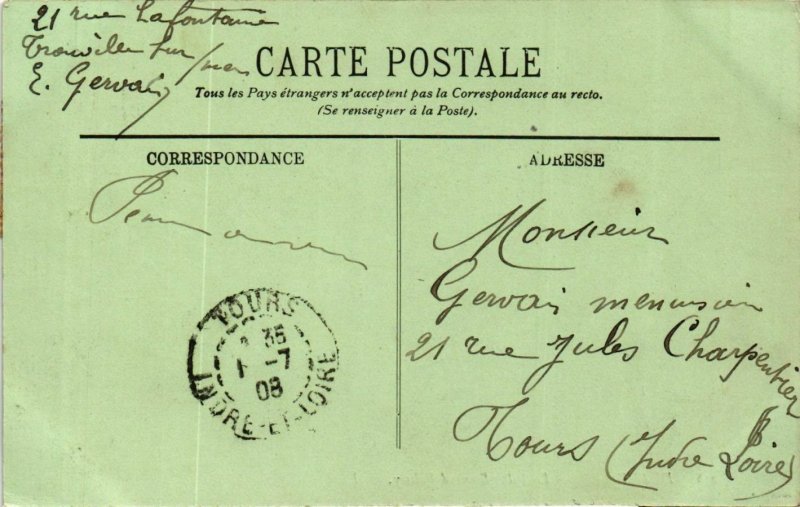 21 rue Lafontaine
Trouville sur / mer
E. Gervais
CARTE POSTALE
Tous les Pays étrangers n'acceptent pas la Correspondance au recto.
(Se renseigner à la Poste).
CORRESPONDANCE
ADRESSE
Monsieur
Gervais menuisier
21 rue Jules Charpentier
Tours (Indre & Loire)
TOURS
35
-7
08
INDRE-ET-LOIRE